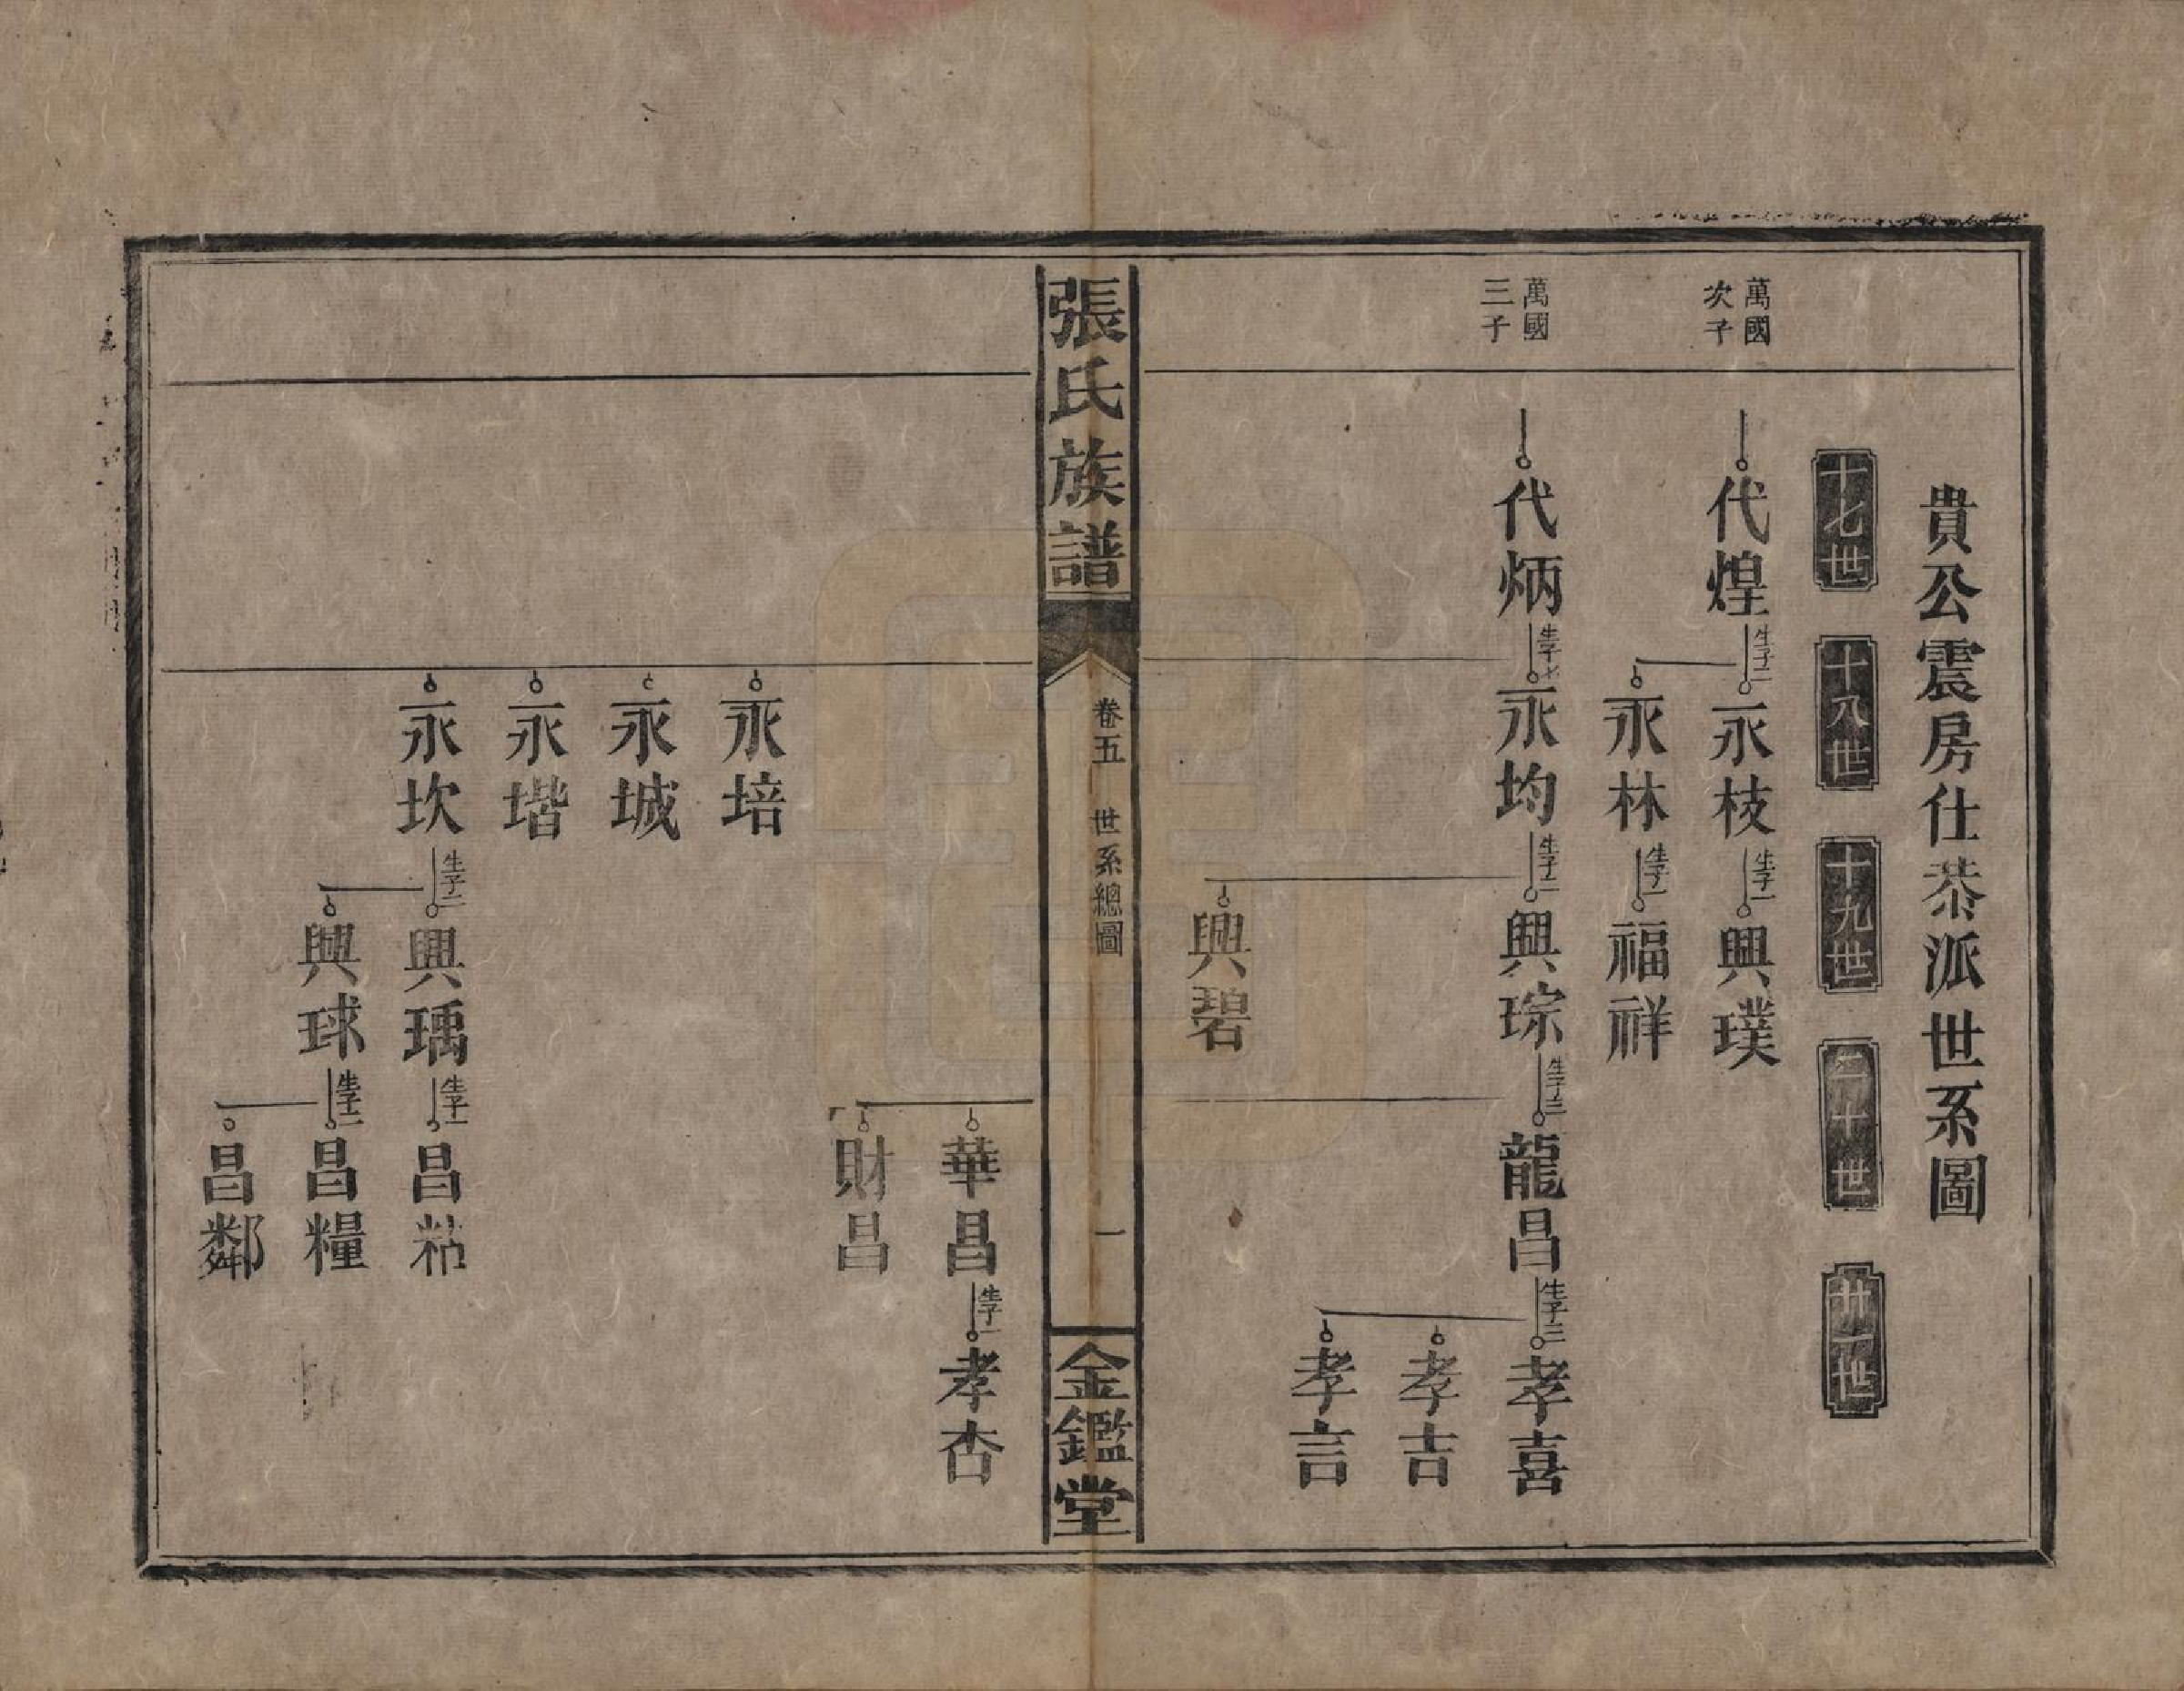 貴公震房仕恭派世系圖
十七世
十八世
十九世
二十世
廿一世
萬國
次子
代煌
生子二
永枝
生子一
興璞
永林
生子一
福祥
萬國
三子
代炳
生子七
永均
生子二
興琮
生子三
龍昌
生子三
孝喜
孝吉
孝言
興碧
張氏族譜
卷五
世系總圖
一
金鑑堂
華昌
生子一
孝杏
財昌
永培
永城
永堦
永坎
生子二
興瑀
生子一
昌䊀
興球
生子二
昌糧
昌鄰